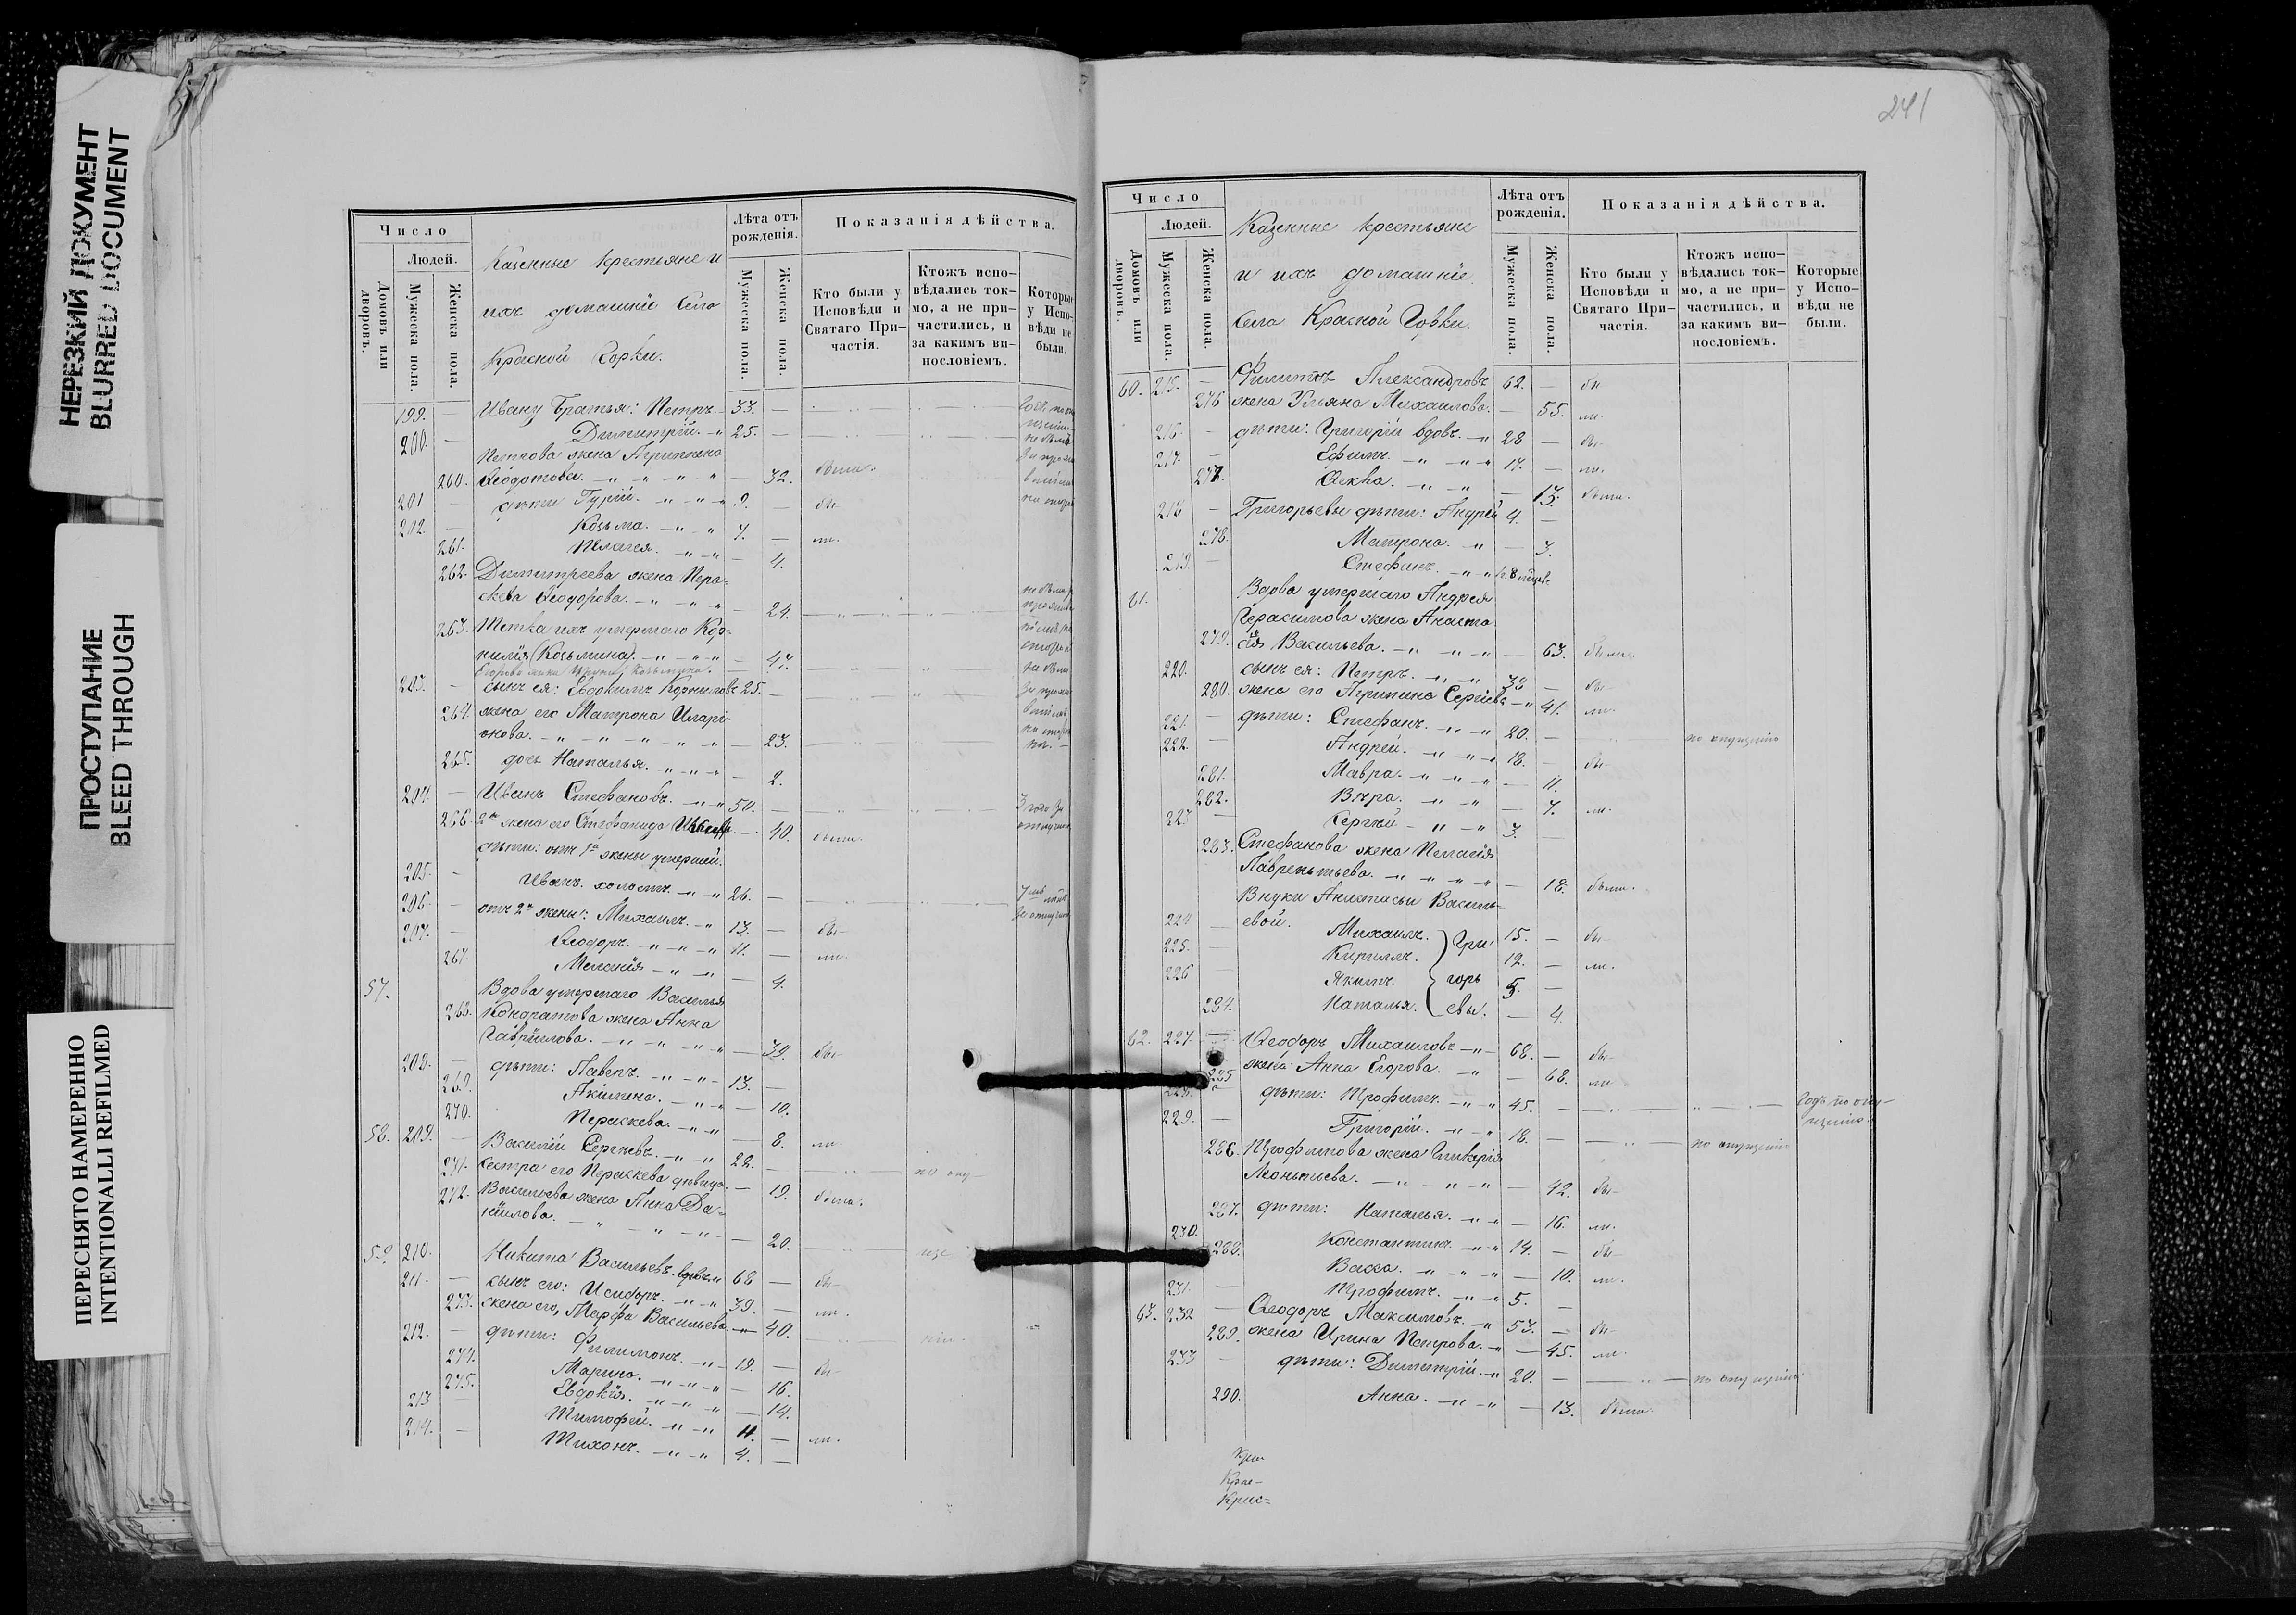 НЕРЕЗКИЙ ДОКУМЕНТ
BLURRED DOCUMENT
ПРОСТУПАНИЕ
BLEED THROUGH
ПЕРЕСНЯТО НАМЕРЕННО
INTENTIONALLI REFILMED
Число
Людей.
Домовъ или дворовъ.
Мужеска пола.
Женска пола.
Казенные крестьяне и
ихъ домашніе Села
Красной Горки.
Лѣта отъ рожденія.
Мужеска пола.
Женска пола.
Показанія дѣйства.
Кто были у Исповѣди и Святаго При-частія.
Ктожъ испо-вѣдались ток-мо, а не при-частились, и за какимъ ви-нословіемъ.
Которые у Испо-вѣди не были.
199. — Ивану братья: Петръ. 33. —
200. — Димитрій. 25. —
Петрова жена Агрипина
260. Ѳеодотова. — 32. были.
201 — дѣти Гурій. 9. — бы-
202. — Козьма. 7. — ли.
261. Пелагея. — 4.
262. Димитреева жена Пара-
скева Ѳеодорова. — 24.
263. Тетка ихъ умершаго Кор-
нилія (Козьмина). — 47.
203. — сынъ ея: Евдокимъ Корниловъ 25. —
264. жена его Матрона Иларі-
онова. — 23.
265. дочь Наталья. — 2.
204. — Иванъ Стефановъ. 50. —
266. 2я жена его Стефанида — 40. были.
дѣти: отъ 1й жены умершей.
205. — Иванъ. холостъ. 26. —
206. — отъ 2й жены: Михаилъ. 13. — бы-
207. — Ѳеодоръ. 11. — ли.
267. Меланія — 4.
57. Вдова умершаго Василья
268. Кондратова жена Анна
Гавріилова. — 39. бы-
208. — дѣти: Павелъ. 13. —
269. Акилина. — 10.
270. Параскева. — 8. ли.
58. 209. — Василій Сергѣевъ. 22. — по опу-
271. сестра его Параскева дѣвица. — 19. были.
272. Васильева жена Анна Да-
ніилова. — 20.
59. 210. Никита Васильевъ вдовъ 68 — бы-
211. — сынъ его: Исидоръ. 39. — ли.
273. жена его, Марфа Васильева — 40.
212. — дѣти: Филимонъ. 19. — бы-
274. Марина. — 16.
275. Евдокія. — 14.
213 — Тимофей. 11. — ли.
214. — Тихонъ. 4. —
241
Число
Людей.
Домовъ или дворовъ.
Мужеска пола.
Женска пола.
Казенные крестьяне
и ихъ домашніе
Села Красной Горки.
Лѣта отъ рожденія.
Мужеска пола.
Женска пола.
Показанія дѣйства.
Кто были у Исповѣди и Святаго При-частія.
Ктожъ испо-вѣдались ток-мо, а не при-частились, и за какимъ ви-нословіемъ.
Которые у Испо-вѣди не были.
60. 215. — Филиппъ Александровъ 62. — бы
276 жена Ульяна Михаилова. — 55. ли.
216. — дѣти: Григорій вдовъ. 28 — бы-
217. — Ефимъ. 17. — ли.
277. Ѳекла. — 13. были.
218 — Григорьевы дѣти: Андрей 4. —
278. Матрона. — 3.
219. — Стефанъ.
61. Вдова умершаго Андрея
Герасимова жена Анаста-
279. сія Васильева. — 63. были.
220. сынъ ея: Петръ. 38 — бы-
280. жена его Агрипина Сергіева — 41. ли.
221. — дѣти: Стефанъ. 20. — по опущенію
222. — Андрей. 18. — бы-
281. Мавра. — 11.
282. Вѣра. — 7. ли.
223 — Сергѣй 3. —
283. Стефанова жена Пелагія
Лаврентьева. — 18. были.
Внуки Анастасьи Василь-
224 — евой. Михаилъ. 15. — бы-
225. — Кириллъ. 12. — ли.
226 — Якимъ. 5. —
284. Наталья. — 4.
Гри-
горь
евы.
62. 227. — Ѳеодоръ Михаиловъ 68. — бы-
285 жена Анна Егорова. — 68. ли
228. — дѣти: Трофимъ. 45. — Годъ по опу-
щенію.
229. — Григорій. 18. — по опущенію
286. Трофимова жена Гликерія
Леонтьева. — 42. бы-
287. дѣти: Наталья. — 16. ли.
230. Константинъ. 14. — бы-
288. Васса. — 10. ли.
231. — Трофимъ. 5. —
63. 232 — Ѳеодоръ Максимовъ. 53. — бы-
289. жена Ирина Петрова. — 45. ли.
233 — дѣти: Димитрій. 20. — по опущенію.
290. Анна. — 13. были.
Кра-
Крас-